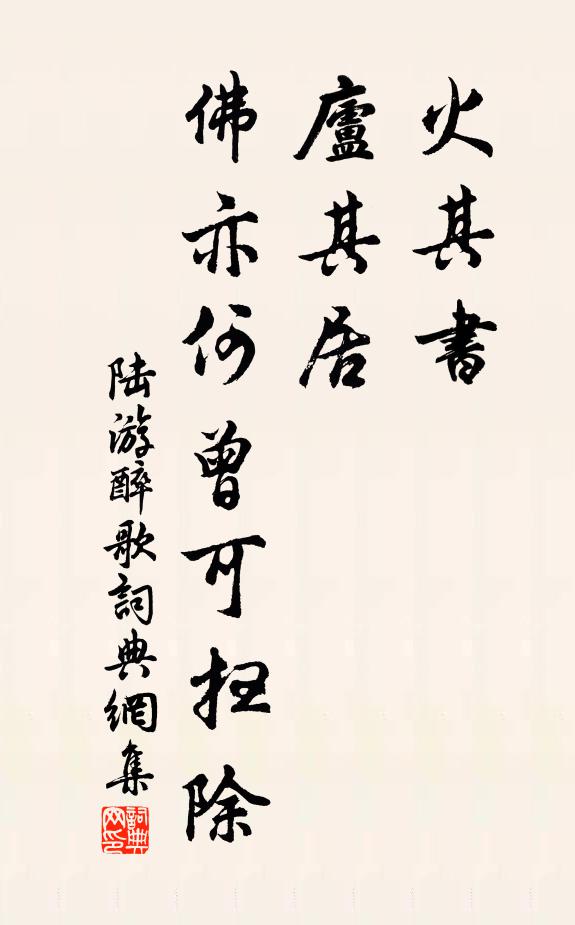 火其書
廬其居
佛亦何曾可扫除
陆游醉歌詞典網集
詞典网印